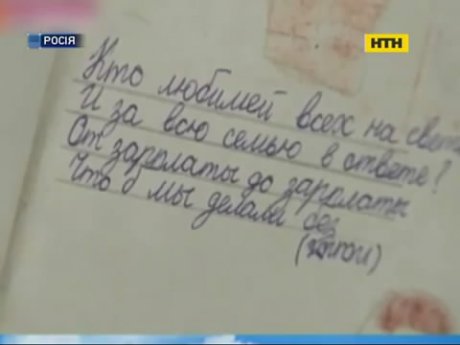 РОСІЯ
НТН
Кто любимей всех на свет
И за всю семью в ответе?
От зарплаты до зарплаты
Что б мы делали без